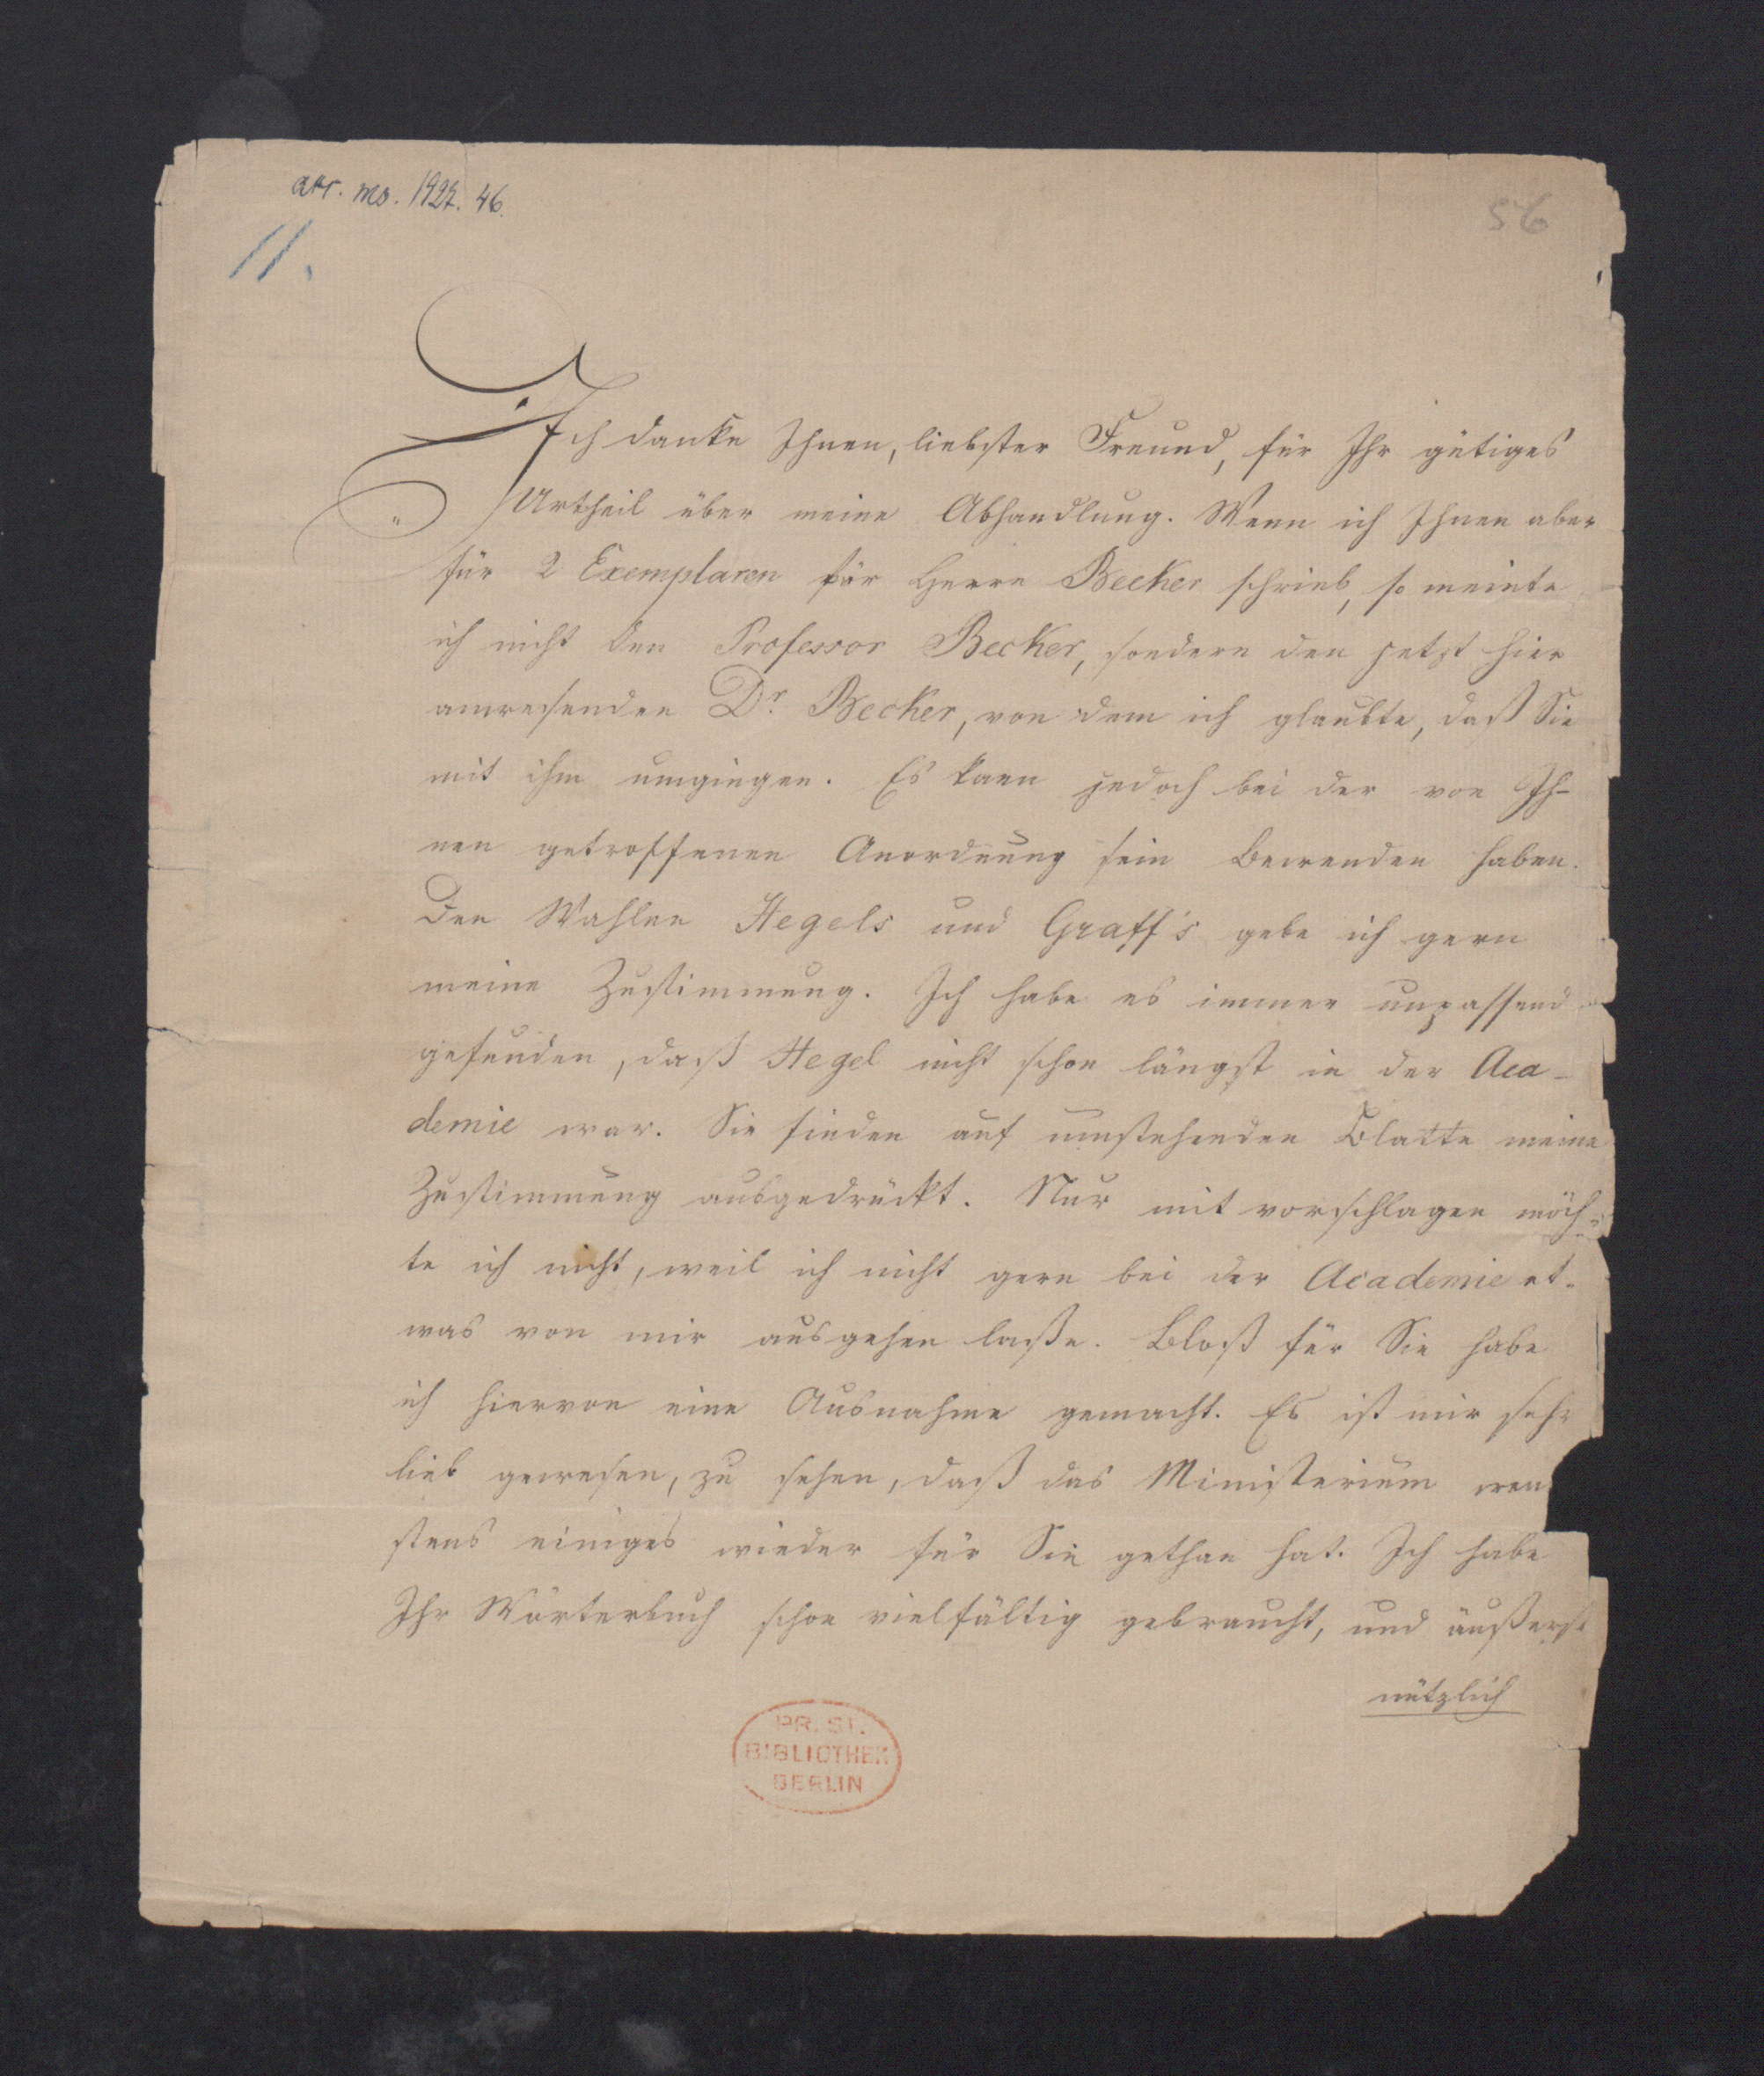 acc. ms. 1927. 46.
56
11.
Ich danke Ihnen, liebster Freund, für Ihr gütiges
Urtheil über meine Abhandlung. Wenn ich Ihnen aber
für 2 Exemplaren für Herrn Becker schrieb, so meinte
ich nicht den Professor Becker, sondern den jetzt hier
anwesenden Dr. Becker, von dem ich glaubte, daß Sie
mit ihm umgingen. Es kann jedoch bei der von Ih-
nen getroffenen Anordnung sein Bewenden haben.
Den Wahlen Hegels und Graff's gebe ich gern
meine Zustimmung. Ich habe es immer unpassend
gefunden, daß Hegel nicht schon längst in der Aca-
demie war. Sie finden auf umstehenden Blatte meine
Zustimmung ausgedrückt. Nur mit vorschlagen möch-
te ich nicht, weil ich nicht gern bei der Academie et-
was von mir ausgehen laße. Bloß für Sie habe
ich hiervon eine Ausnahme gemacht. Es ist mir sehr
lieb gewesen, zu sehen, daß das Ministerium wen
stens einiges wieder für Sie gethan hat. Ich habe
Ihr Wörterbuch schon vielfältig gebraucht, und äußerst
nützlich
PR. ST.
BIBLIOTHEK
BERLIN